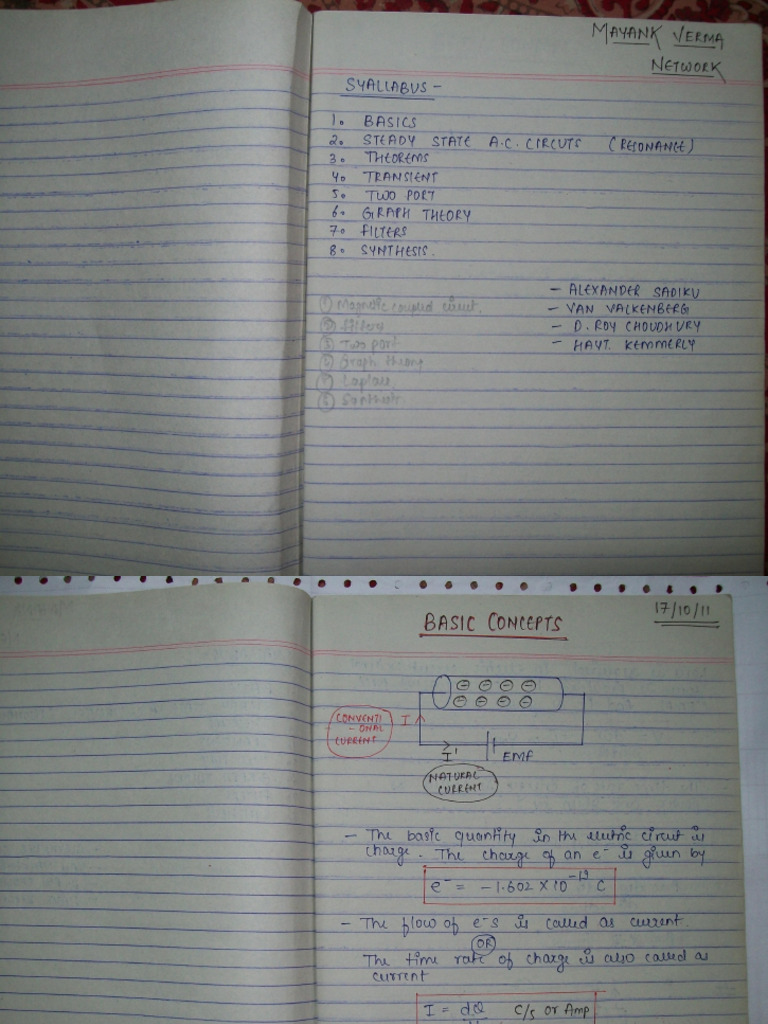 MAYANK VERMA
NETWORK
SYALLABUS -
1. BASICS
2. STEADY STATE A.C. CIRCUTS (RESONANCE)
3. THEOREMS
4. TRANSIENT
5. TWO PORT
6. GRAPH THEORY
7. FILTERS
8. SYNTHESIS.
- ALEXANDER SADIKU
- VAN VALKENBERG
- D. ROY CHOUDHURY
- HAYT. KEMMERLY
① Magnetic coupled circuit.
② filters
③ Two port
Graph theory
Laplace
17/10/11
BASIC CONCEPTS
CONVENTI
- ONAL
CURRENT
I
I'
EMF
NATURAL
CURRENT
- The basic quantity in the electric circuit is
charge. The charge of an e⁻ is given by
e⁻ = -1.602 X 10⁻¹⁹ C
- The flow of e⁻s is called as current.
OR
The time rate of charge is also called as
current
I = dQ C/s or Amp